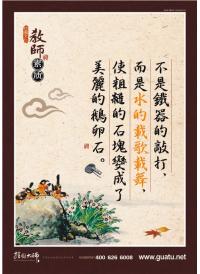 教師
素质
不是鐵器的敲打，
而是水的載歌載舞，
使粗糙的石塊變成了
美麗的鵝卵石。
400 626 6008
www.guatu.net